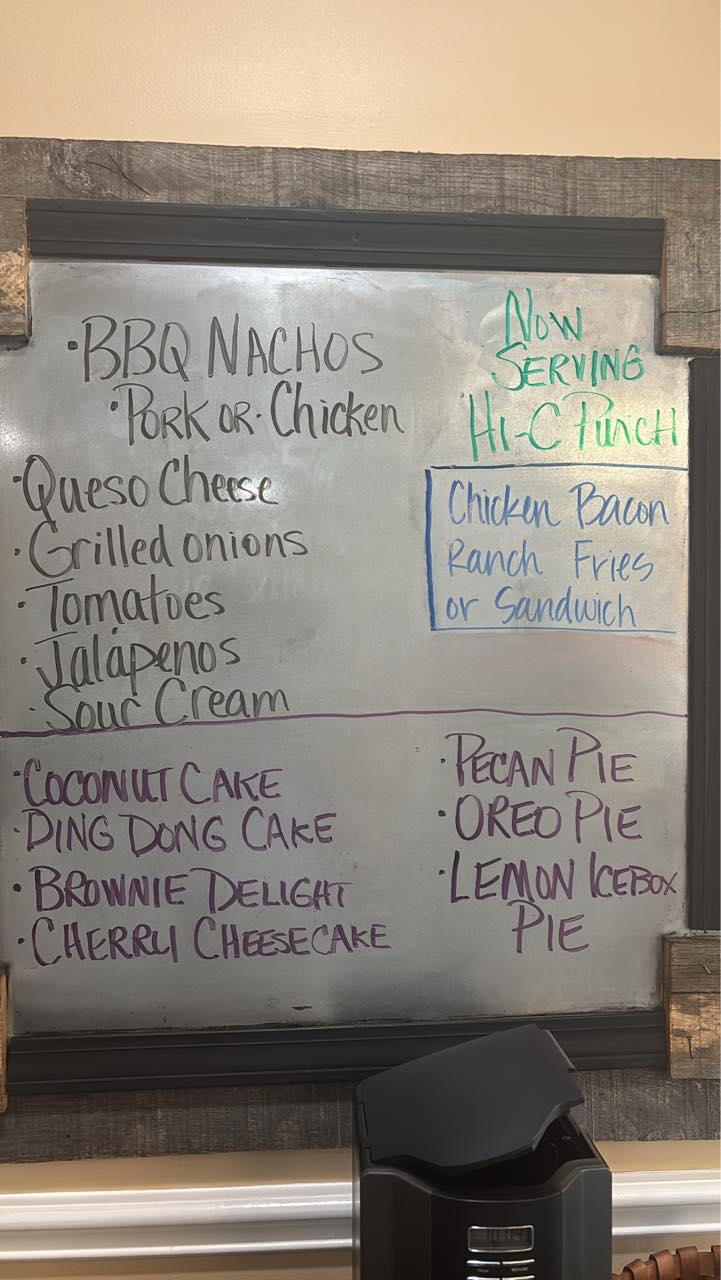 ·BBQ NACHOS
·PORK OR· Chicken
·Queso Cheese
·Grilled onions
·Tomatoes
·Jalapenos
·Sour Cream
NOW
SERVING
HI-C PUNCH
Chicken Bacon
Ranch Fries
or Sandwich
·COCONUT CAKE
·DING DONG CAKE
·BROWNIE DELIGHT
·CHERRY CHEESECAKE
·PECAN PIE
·OREO PIE
·LEMON ICEBOX
PIE